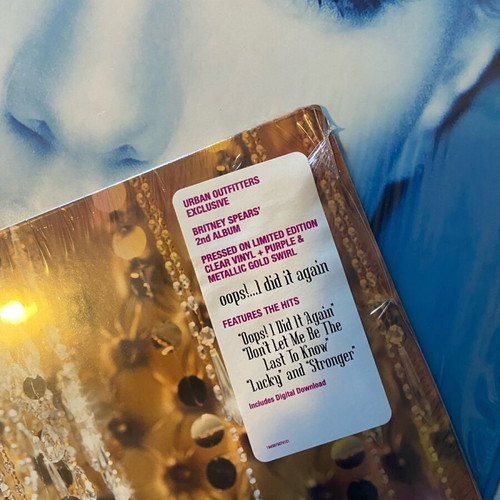 URBAN OUTFITTERS
EXCLUSIVE
BRITNEY SPEARS'
2nd ALBUM
PRESSED ON LIMITED EDITION
CLEAR VINYL + PURPLE &
METALLIC GOLD SWIRL
oops!...I did it again
FEATURES THE HITS
"Oops! I Did It Again"
"Don't Let Me Be The
Last To Know"
"Lucky" and "Stronger"
Includes Digital Download